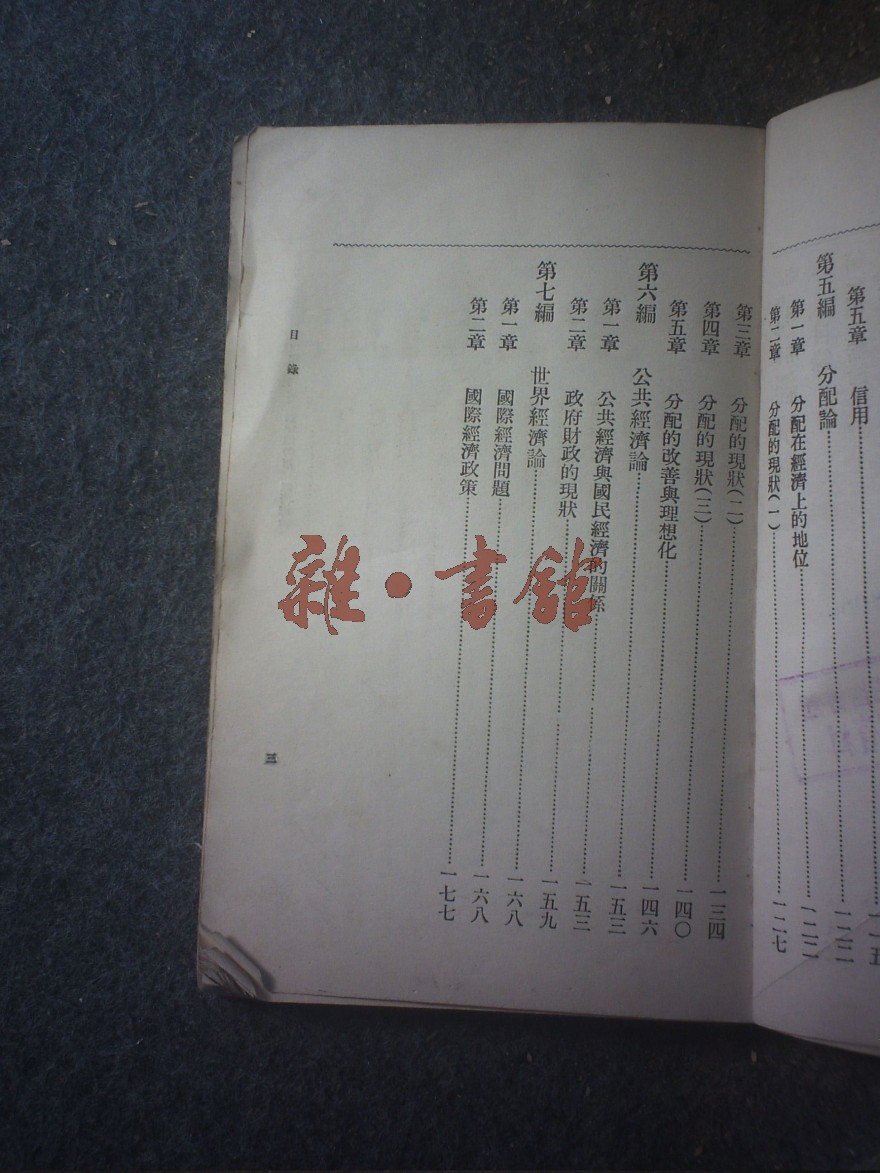 第五章 信用……一一五
第五編 分配論……一二二
第一章 分配在經濟上的地位……一二二
第二章 分配的現狀(一)……一二七
第三章 分配的現狀(二)……一三四
第四章 分配的現狀(三)……一四〇
第五章 分配的改善與理想化……一四六
第六編 公共經濟論……一五三
第一章 公共經濟與國民經濟的關係……一五三
第二章 政府財政的現狀……一五九
第七編 世界經濟論……一六八
第一章 國際經濟問題……一六八
第二章 國際經濟政策……一七七
目錄
三
雜·書館